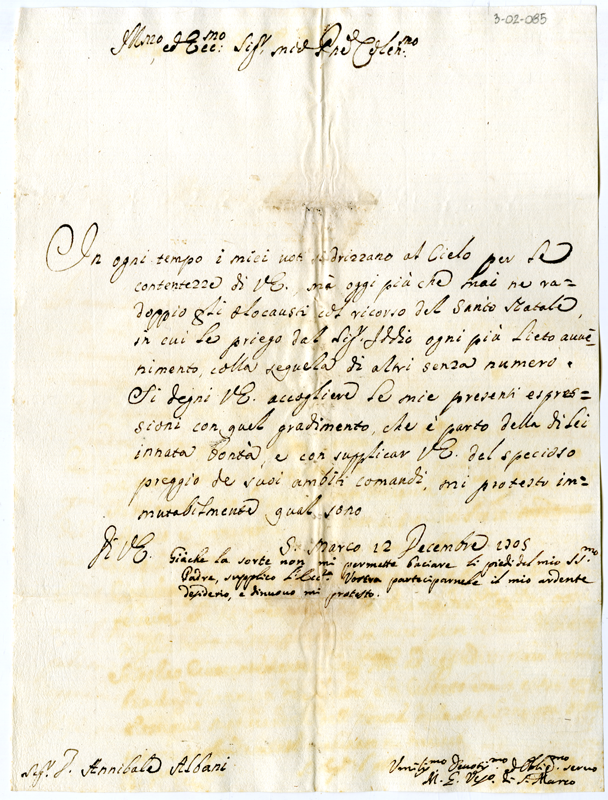 3-02-085
Ill.mo, ed Ecc.mo Sig.r mio P.ne Colen.mo
In ogni tempo i miei voti s'adrizzano al Cielo per le
contentezze di V.E. mà oggi più che mai ne ra=
doppio gli olocausti col ricorso del Santo Natale,
in cui le priego dal Sig.r Iddio ogni più lieto avve=
nimento, colla sequela di altri senza numero.
Si degni V.E. accogliere le mie presenti espres=
sioni con quel gradimento, che è parto della di lei
innata bontà, e con supplicar V.E. del specioso
preggio de suoi ambiti comandi, mi protesto im=
mutabilmente qual sono
Di V.E. S. Marco 12 Decembre 1705
Giache la sorte non mi permette baciare li piedi del mio SS.mo
Padre, supplico l'Ecc.za Vostra parteciparnele il mio ardente
desiderio, e dinuovo mi protesto.
Sig.r D. Annibale Albani
Umiliss.mo Devotiss.mo ed Oblig.mo servo
M. E. Ves.o di S. Marco